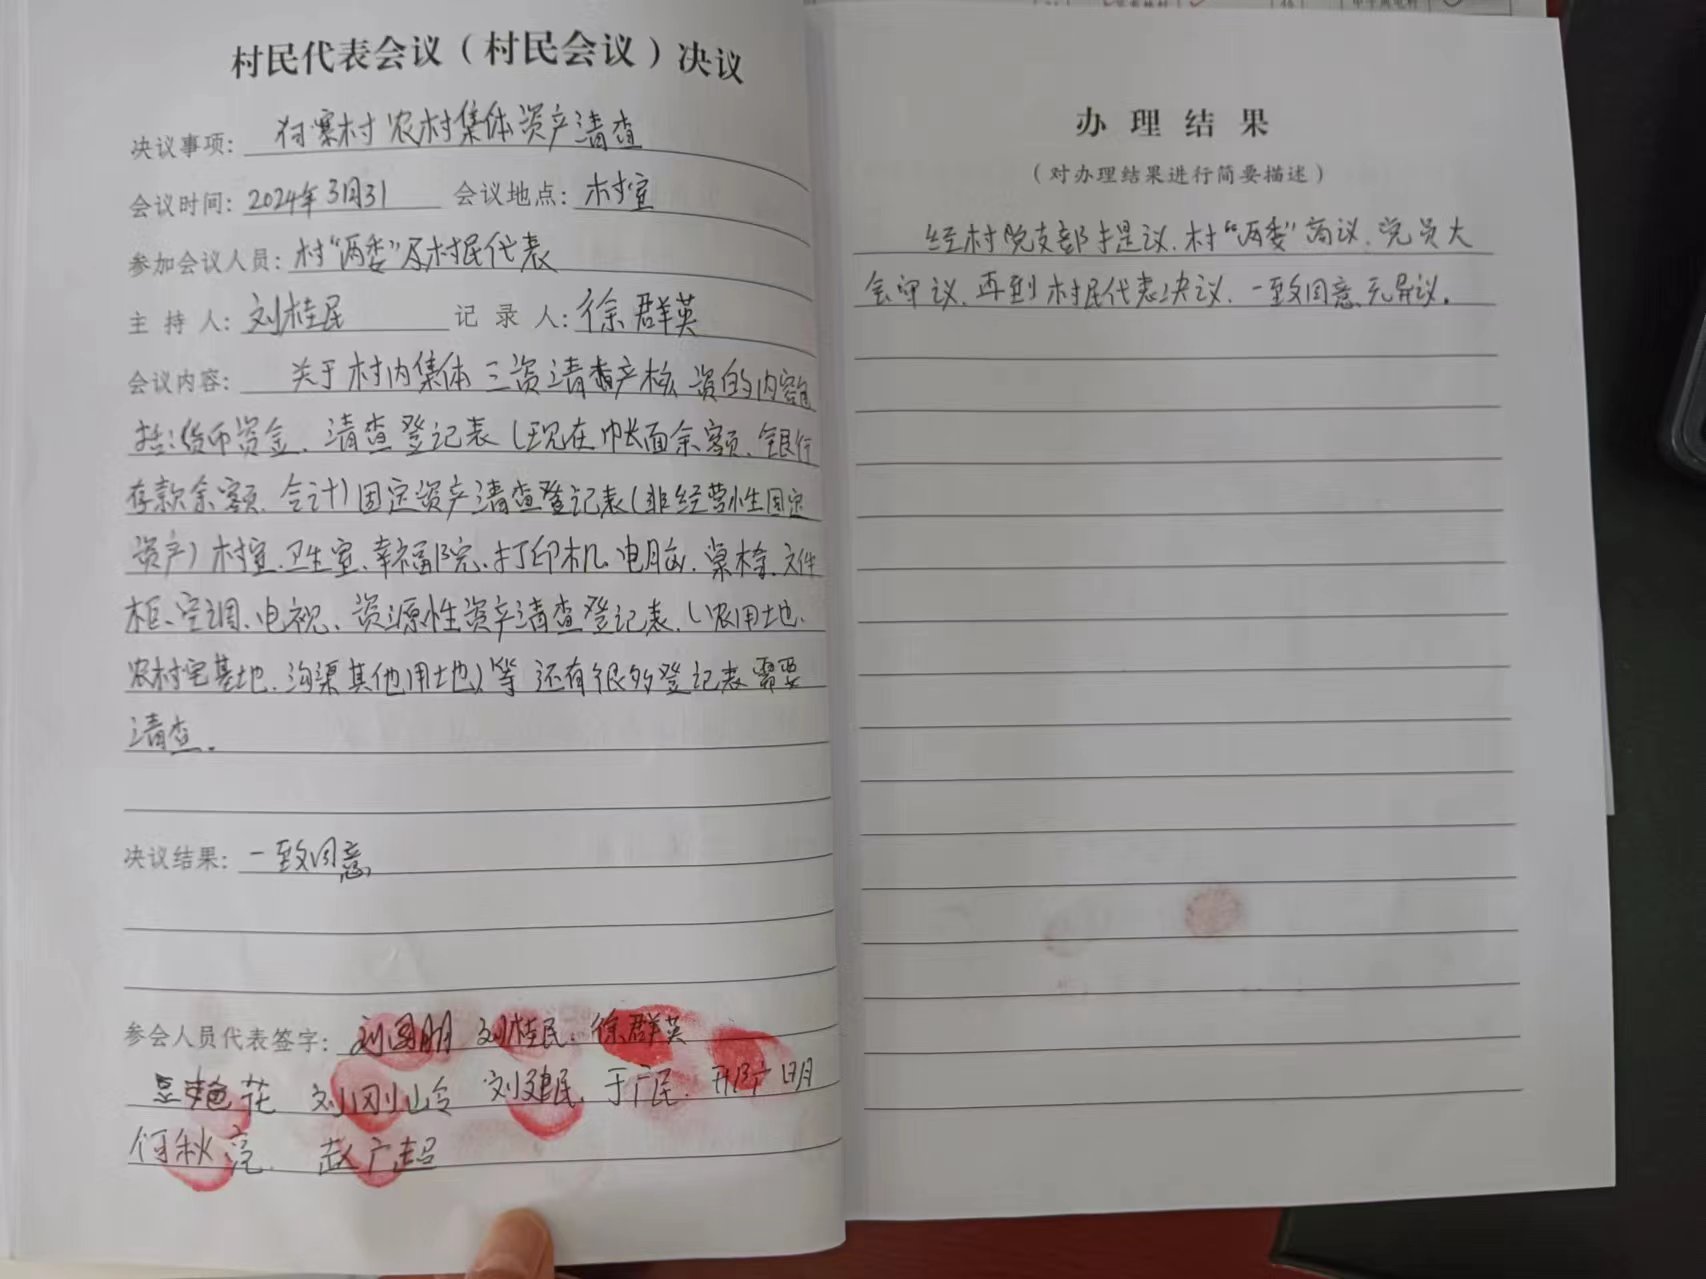 村民代表会议（村民会议）决议
决议事项：寨村农村集体资产清查
会议时间：2024年3月31 会议地点：村室
参加会议人员：村“两委”及村民代表
主持人：刘桂民 记录人：徐群英
会议内容：关于村内集体三资清产核资的内容包
括：货币资金、清查登记表（现在帐面余额、银行
存款余额、会计）固定资产清查登记表（非经营性固定
资产）村室、卫生室、幸福院、打印机、电脑、桌椅、文件
柜、空调、电视、资源性资产清查登记表、（农用地、
农村宅基地、沟渠其他用地）等还有很多登记表需要
清查。
决议结果：一致同意
参会人员代表签字：刘国明 刘桂民、徐群英
艳花 刘刚岭 刘建民、于广民、邢广明
何秋亮、赵广超
办理结果
（对办理结果进行简要描述）
经村党支部提议、村“两委”商议、党员大
会审议、再到村民代表决议、一致同意、无异议。